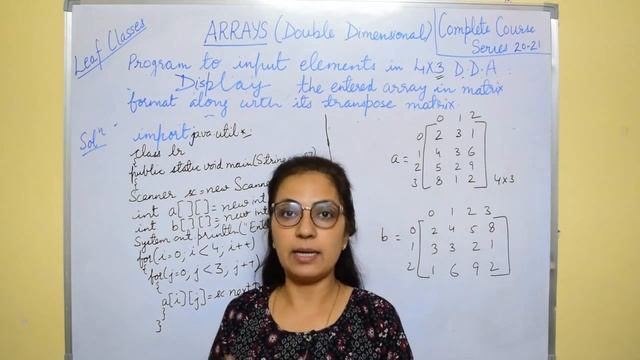 Leaf Classes
ARRAYS (Double Dimensional)
Complete Course
Series 20-21
Program to input elements in 4X3 D.D.A.
Display the entered array in matrix
format along with its transpose matrix.
Solⁿ
import java.util.*;
class lr
{
public static void main(String
{
Scanner sc = new Scanner
int a[ ][ ] = new int
int b[ ][ ] = new int
System out println("Ent
for(i=0; i<4, i++)
{ for(j=0, j<3, j++)
{
a[i][j] = sc next
}
}
0 1 2
0 2 3 1
a = 1 4 3 6
2 5 2 9
3 8 1 2 4x3
0 1 2 3
b = 0 2 4 5 8
1 3 3 2 1
2 1 6 9 2